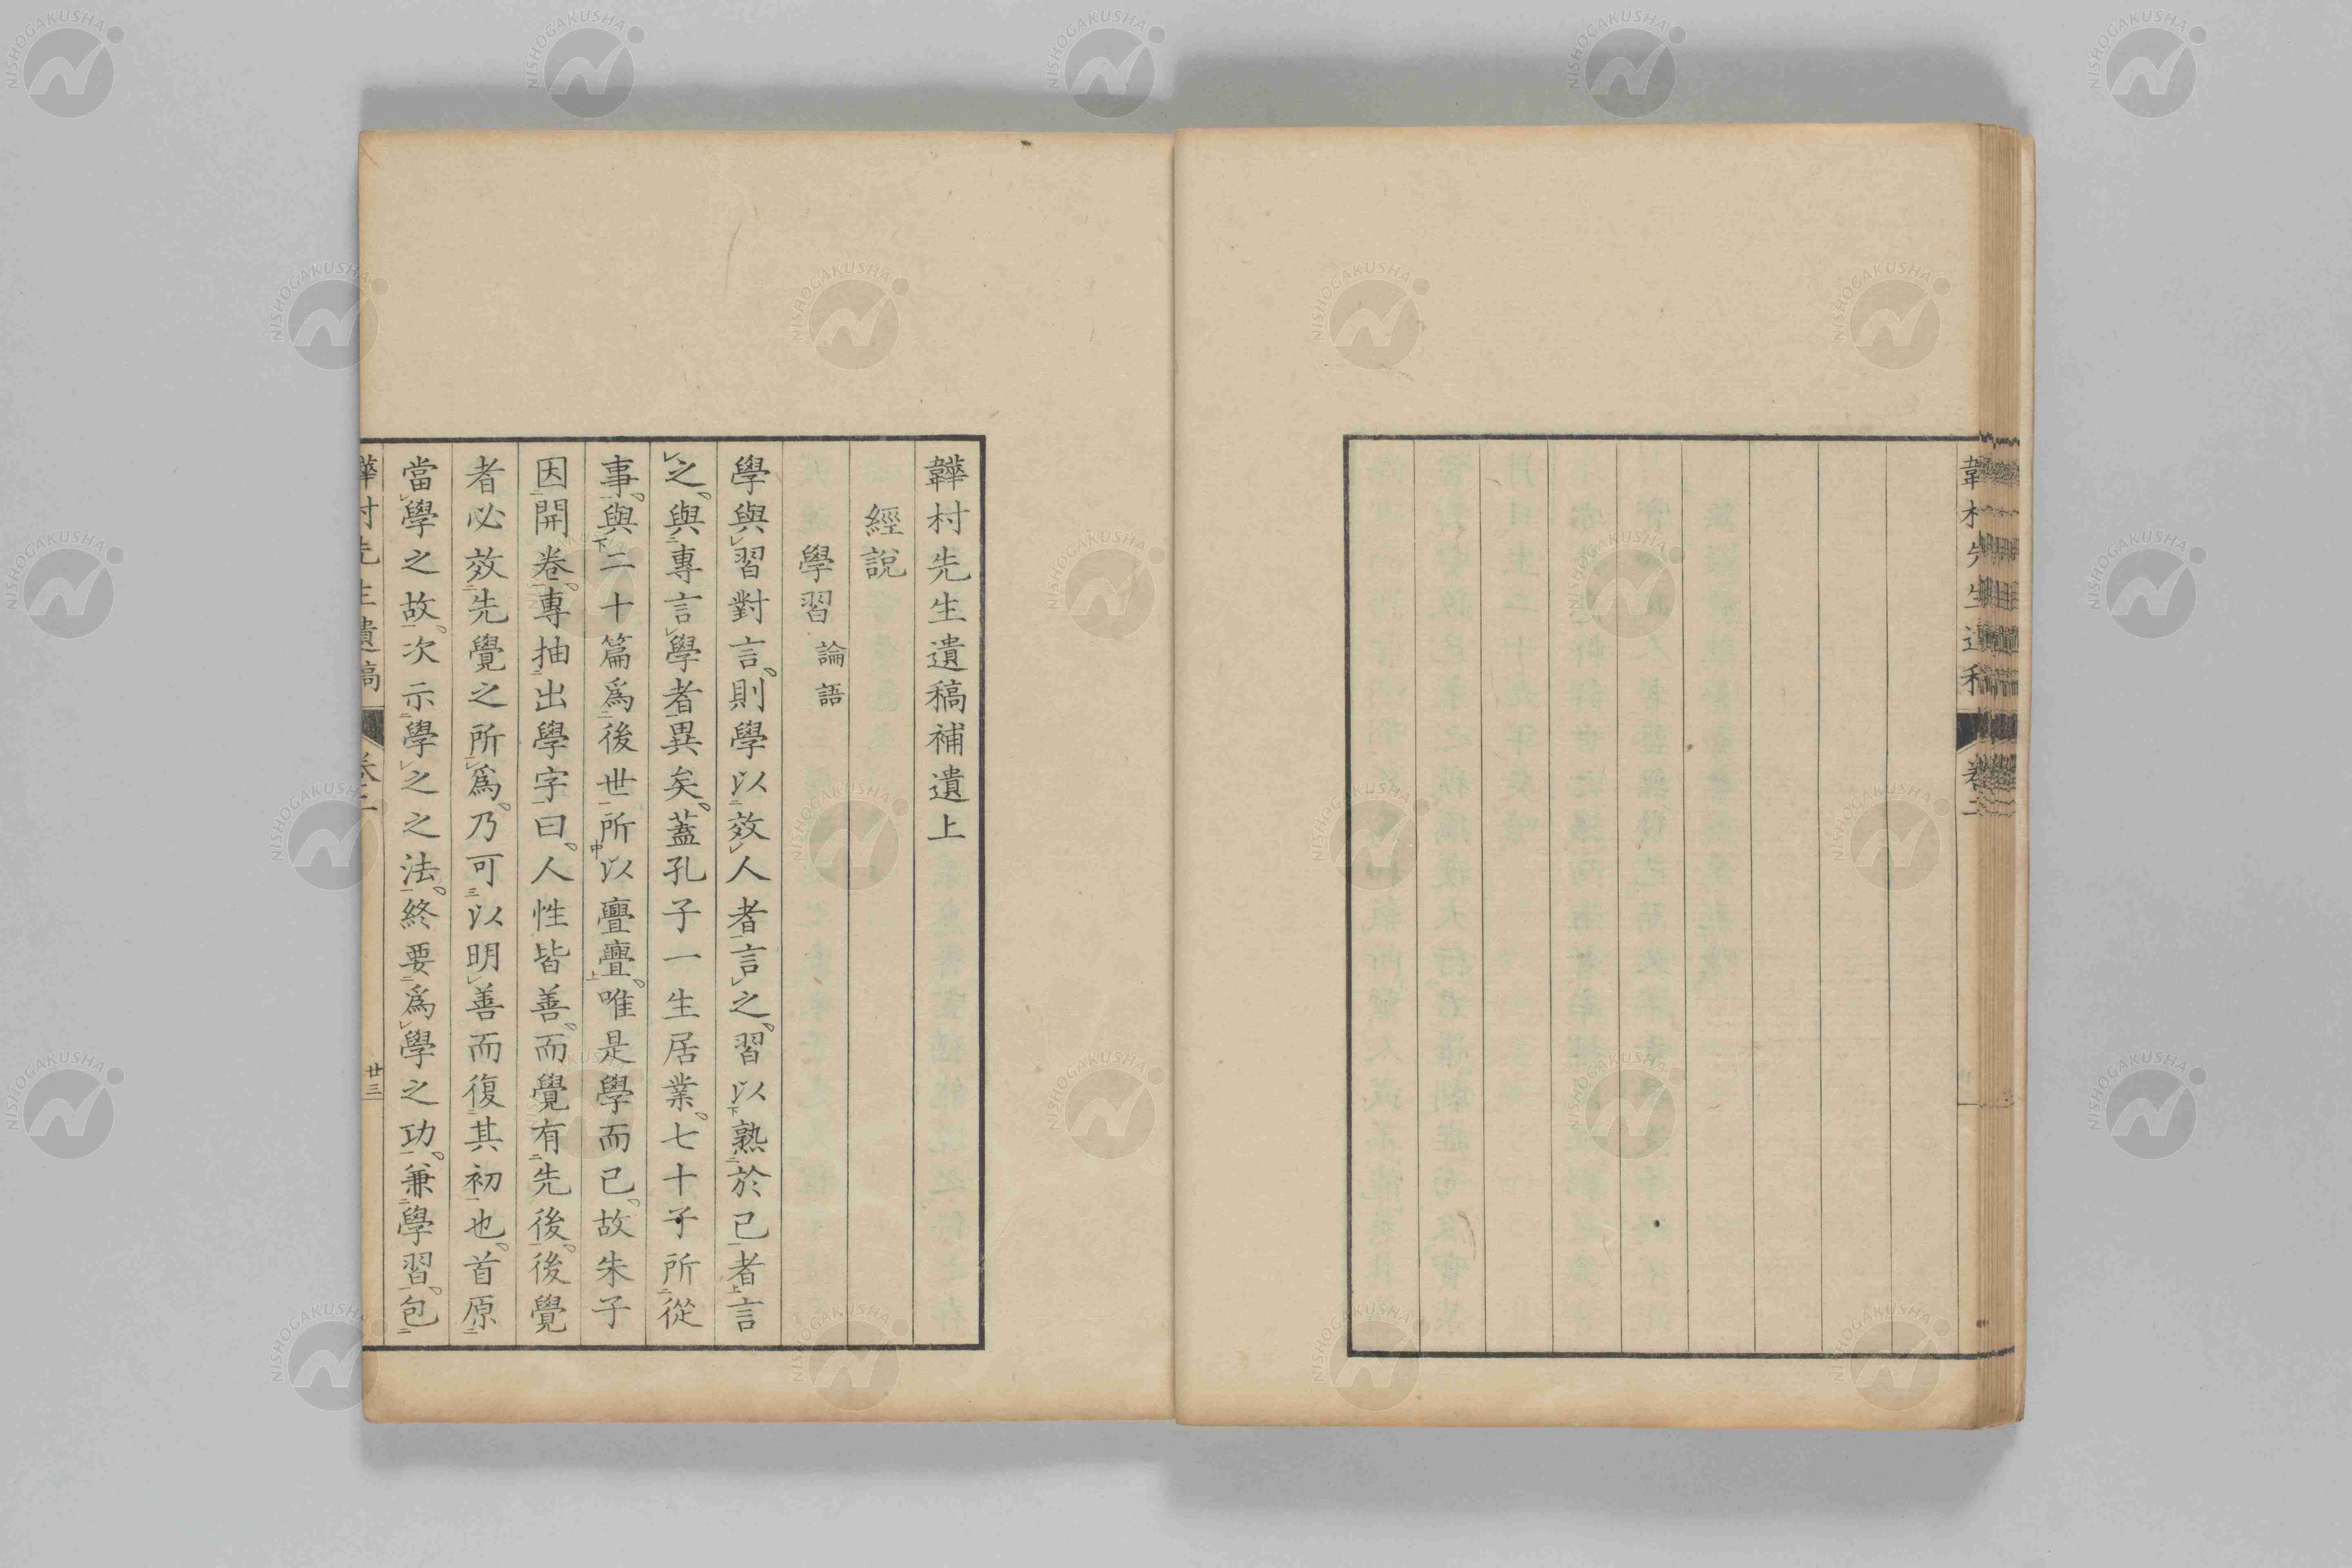 韡村先生遺稿補遺上
經說
學習 論語
學與習對言。則學以效人者言之。習以熟於己者言
之。與專言學者異矣。蓋孔子一生居業。七十子所從
事。與二十篇爲後世所以亹亹。唯是學而已。故朱子
因開卷。專抽出學字曰。人性皆善。而覺有先後。後覺
者必效先覺之所爲。乃可以明善而復其初也。首原
當學之故。次示學之之法。終要爲學之功。兼學習。包
韡村先生遺稿
卷二
廿三
NISHOGAKUSHA